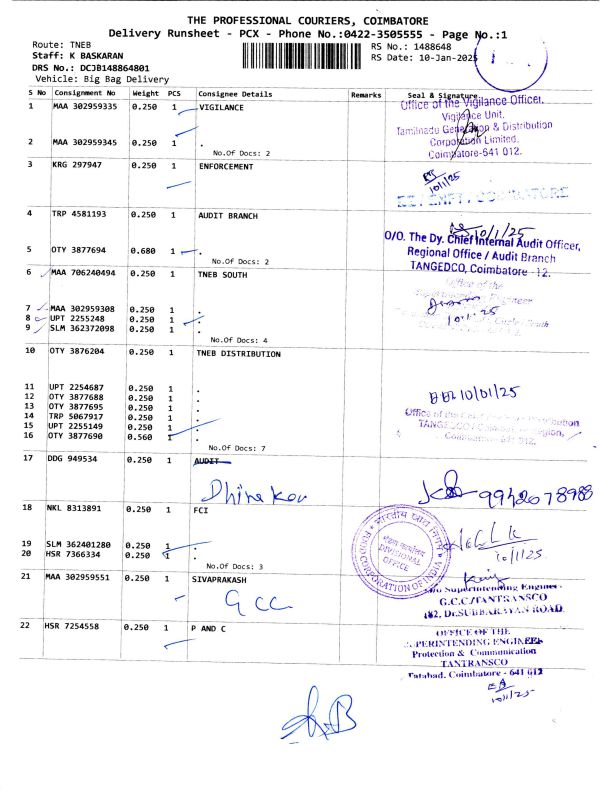 THE PROFESSIONAL COURIERS, COIMBATORE
Delivery Runsheet - PCX - Phone No.:0422-3505555 - Page No.:1
Route: TNEB
RS No.: 1488648
Staff: K BASKARAN
RS Date: 10-Jan-2025
DRS No.: DCJB148864801
Vehicle: Big Bag Delivery
S No Consignment No Weight PCS Consignee Details Remarks Seal & Signature
1 MAA 302959335 0.250 1 VIGILANCE
Office of the Vigilance Officer,
Vigilance Unit,
Tamilnadu Generation & Distribution
2 MAA 302959345 0.250 1 .
Corporation Limited,
No.Of Docs: 2
Coimbatore-641 012.
3 KRG 297947 0.250 1 ENFORCEMENT
10/1/25
4 TRP 4581193 0.250 1 AUDIT BRANCH
10/1/25
O/O. The Dy. Chief Internal Audit Officer,
5 OTY 3877694 0.680 1 .
Regional Office / Audit Branch
No.Of Docs: 2
TANGEDCO, Coimbatore - 12.
6 MAA 706240494 0.250 1 TNEB SOUTH
Office of the
7 MAA 302959308 0.250 1 .
8 UPT 2255248 0.250 1 .
9 SLM 362372098 0.250 1 .
No.Of Docs: 4
10 OTY 3876204 0.250 1 TNEB DISTRIBUTION
11 UPT 2254687 0.250 1 .
12 OTY 3877688 0.250 1 .
10/01/25
13 OTY 3877695 0.250 1 .
14 TRP 5067917 0.250 1 .
15 UPT 2255149 0.250 1 .
16 OTY 3877690 0.560 1 .
No.Of Docs: 7
17 DDG 949534 0.250 1 AUDIT
9942078988
18 NKL 8313891 0.250 1 FCI
भारतीय खाद्य निगम
DIVISIONAL
OFFICE
FOOD CORPORATION OF INDIA
19 SLM 362401280 0.250 1 .
20 HSR 7366334 0.250 1 .
10/1/25
No.Of Docs: 3
21 MAA 302959551 0.250 1 SIVAPRAKASH
GCC
Superintending Engineer
G.C.C/TANTRANSCO
182, DR.SUBBARAYAN ROAD
22 HSR 7254558 0.250 1 P AND C
OFFICE OF THE
SUPERINTENDING ENGINEER
Protection & Communication
TANTRANSCO
Tatabad, Coimbatore - 641 012
10/1/25